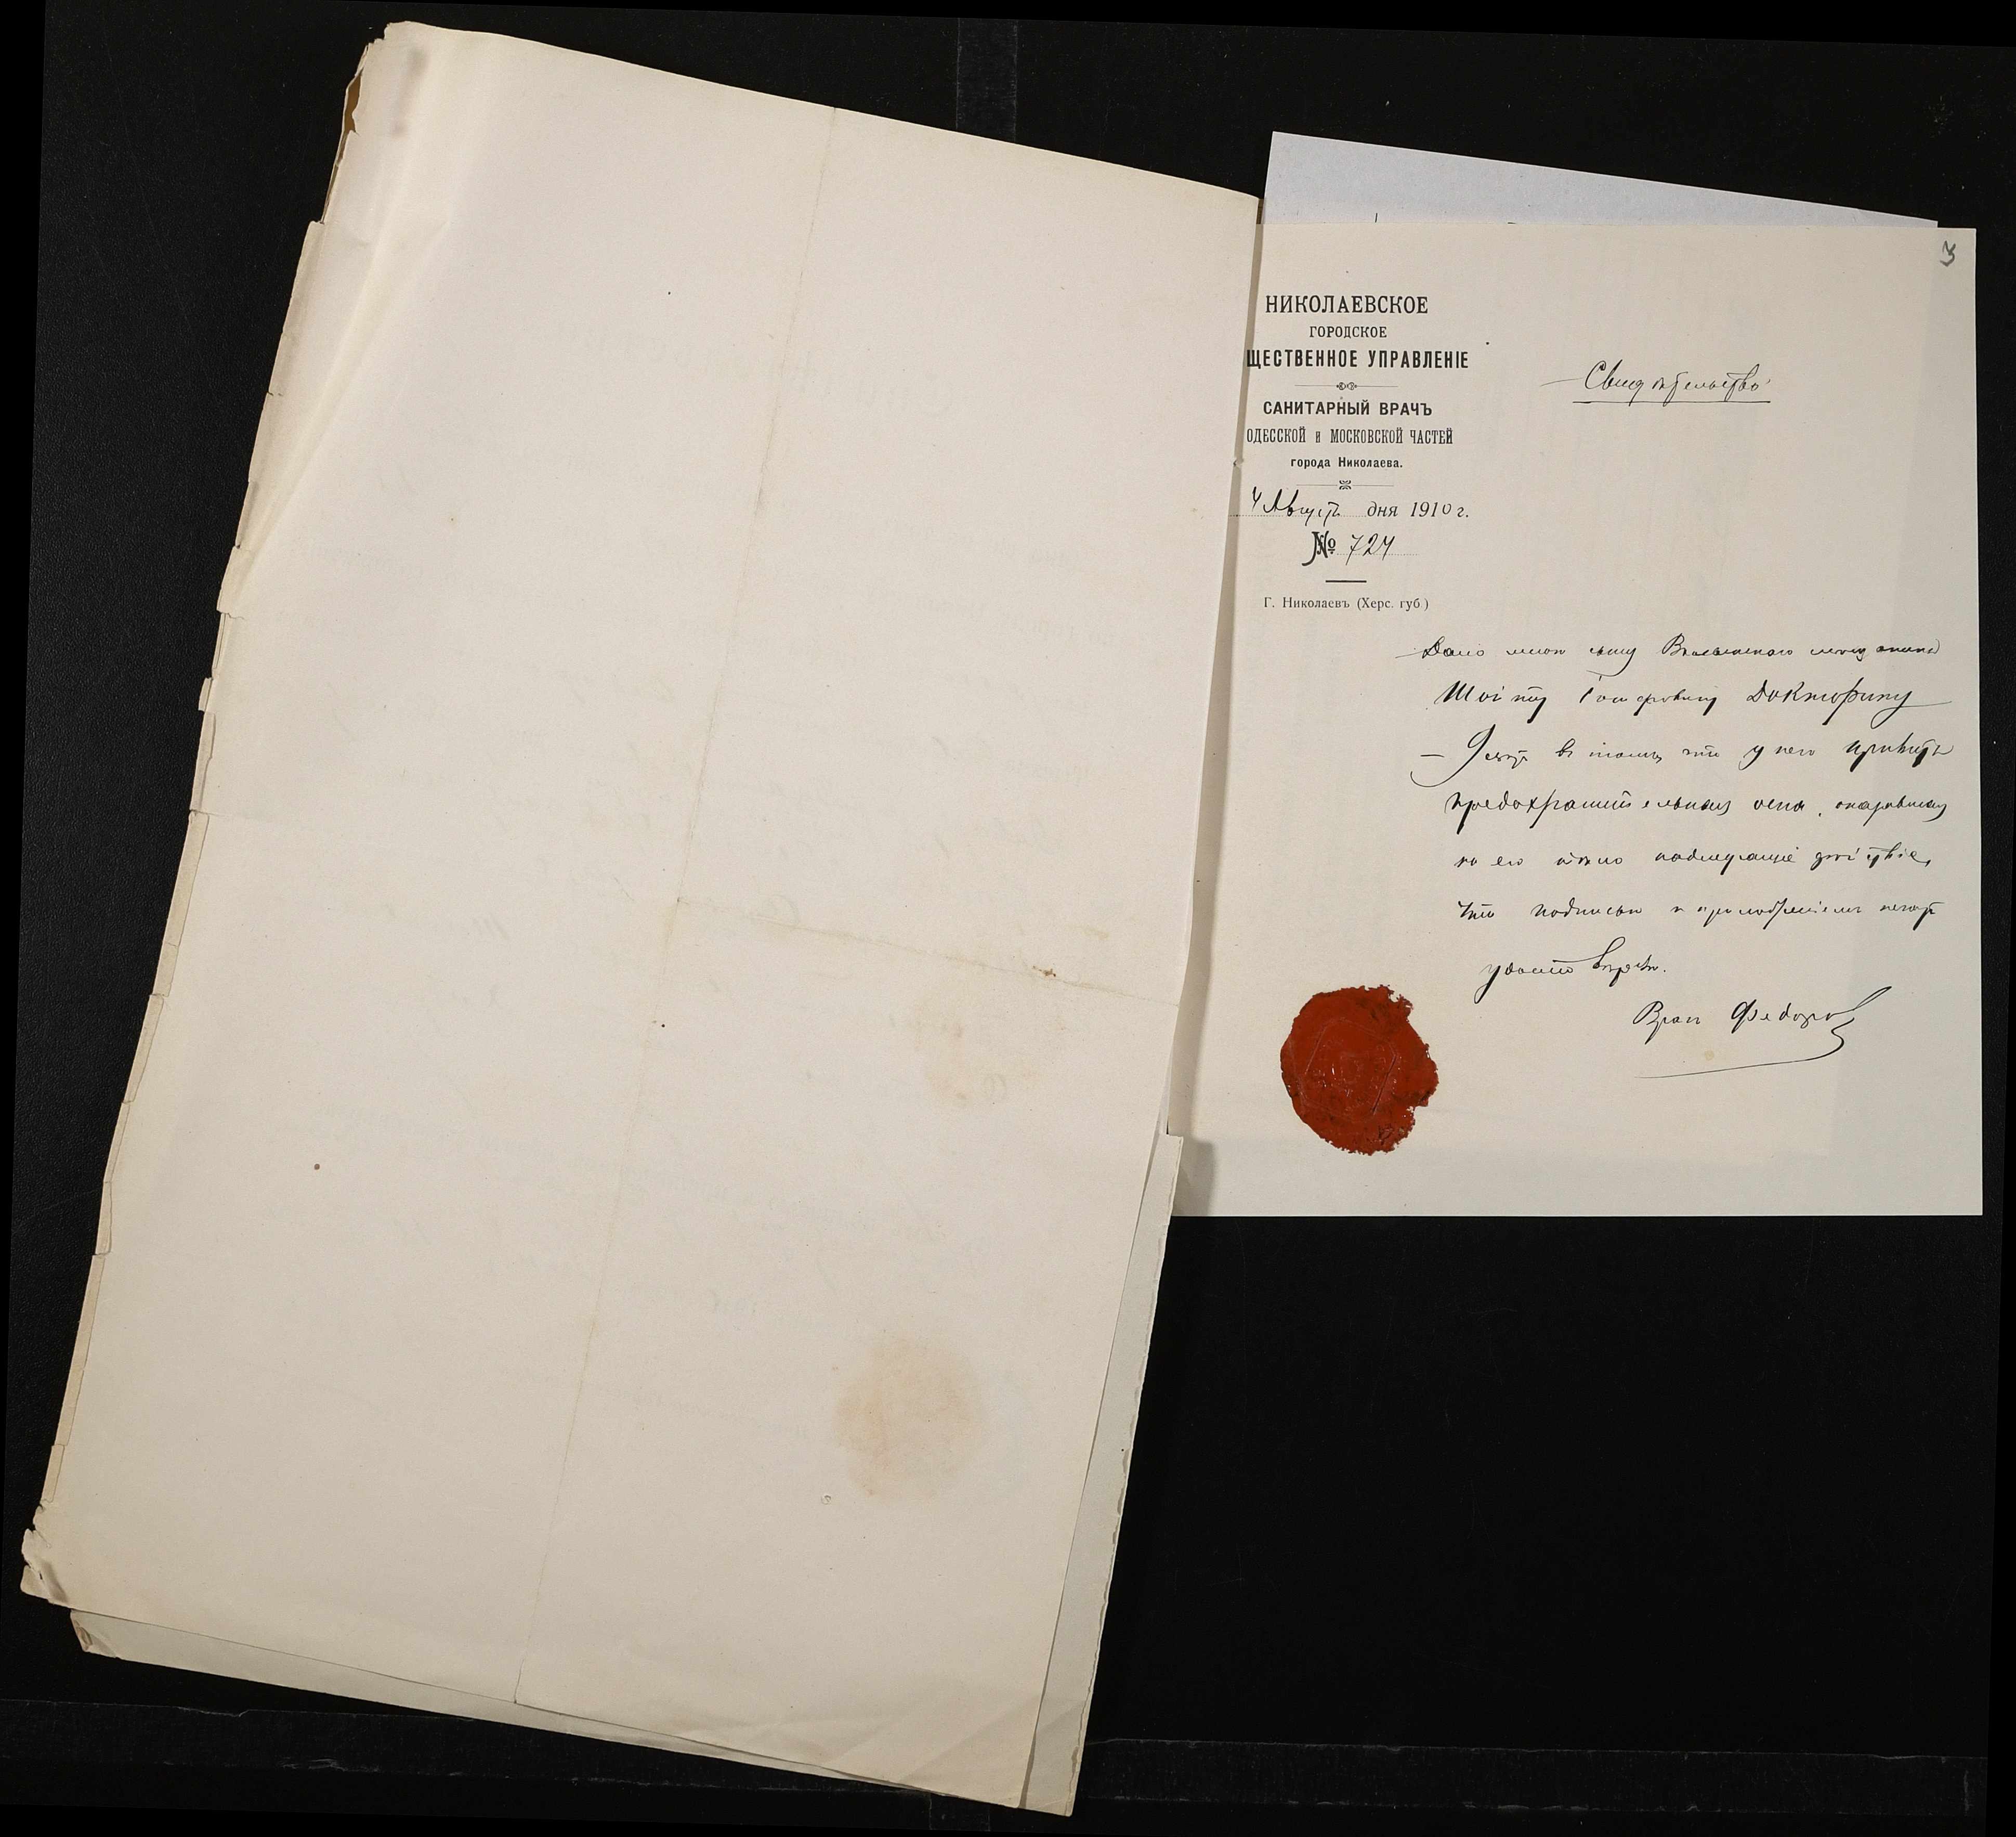 3
НИКОЛАЕВСКОЕ
ГОРОДСКОЕ
ЩЕСТВЕННОЕ УПРАВЛЕНІЕ
САНИТАРНЫЙ ВРАЧЪ
ОДЕССКОЙ и МОСКОВСКОЙ ЧАСТЕЙ
города Николаева.
4 Августа дня 1910 г.
№ 724
Г. Николаевъ (Херс. губ)
Свидѣтельство
Дано сыну мѣщанина
Докторину
въ томъ, что у него привита
предохранительная оспа, оказавшая
на его тѣло надлежащее дѣйствіе,
что подписью и приложеніемъ печати
удостовѣряю.
Врач Федоров